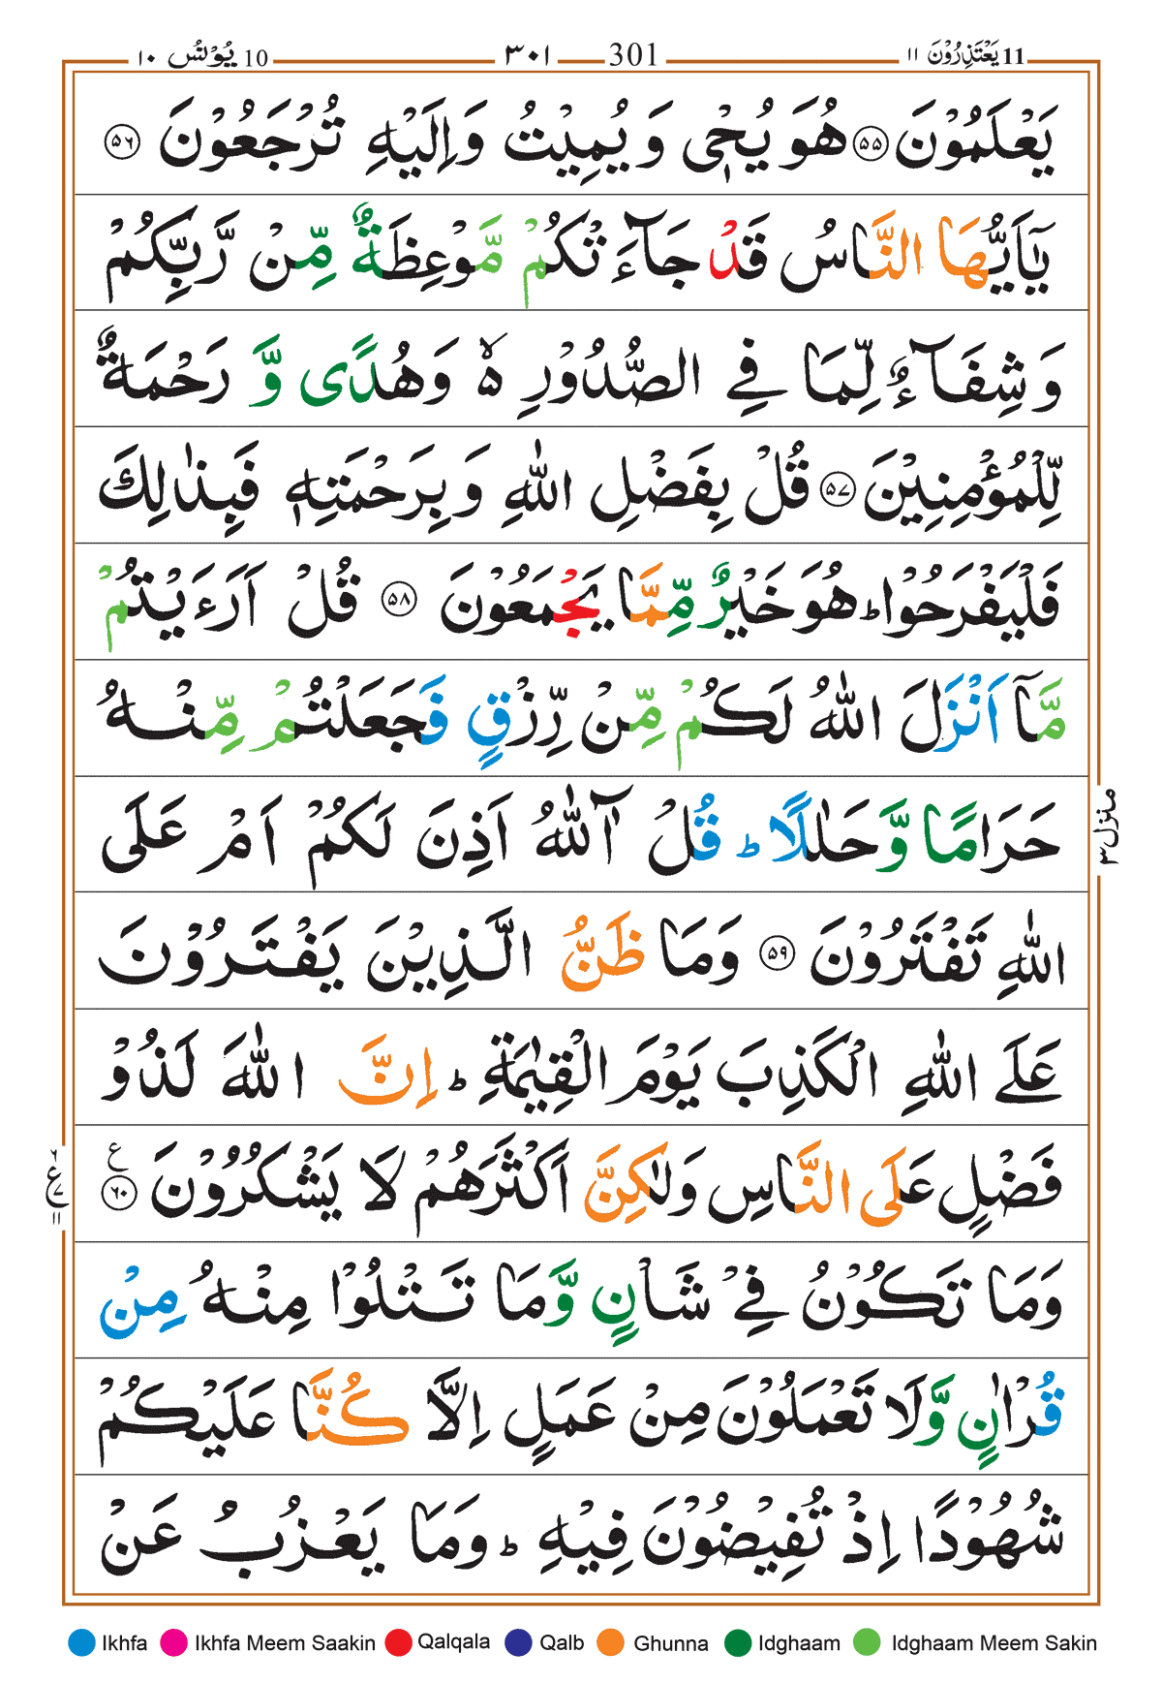 یَعْتَذِرُوْنَ ۱۱ 11 301 ۳۰۱ 10 یُوْنُسُ ۱۰
یَعْلَمُوْنَ ۵۵ هُوَ یُحْیٖ وَ یُمِیْتُ وَ اِلَیْهِ تُرْجَعُوْنَ ۵۶
یٰۤاَیُّهَا النَّاسُ قَدْ جَآءَتْكُمْ مَّوْعِظَةٌ مِّنْ رَّبِّكُمْ
وَ شِفَآءٌ لِّمَا فِی الصُّدُوْرِ ۙ۬ وَ هُدًی وَّ رَحْمَةٌ
لِّلْمُؤْمِنِیْنَ ۵۷ قُلْ بِفَضْلِ اللّٰهِ وَ بِرَحْمَتِهٖ فَبِذٰلِكَ
فَلْیَفْرَحُوْا ؕ هُوَ خَیْرٌ مِّمَّا یَجْمَعُوْنَ ۵۸ قُلْ اَرَءَیْتُمْ
مَّاۤ اَنْزَلَ اللّٰهُ لَكُمْ مِّنْ رِّزْقٍ فَجَعَلْتُمْ مِّنْهُ
حَرَامًا وَّ حَلٰلًا ؕ قُلْ آٰللّٰهُ اَذِنَ لَكُمْ اَمْ عَلَی
اللّٰهِ تَفْتَرُوْنَ ۵۹ وَ مَا ظَنُّ الَّذِیْنَ یَفْتَرُوْنَ
عَلَی اللّٰهِ الْكَذِبَ یَوْمَ الْقِیٰمَةِ ؕ اِنَّ اللّٰهَ لَذُوْ
فَضْلٍ عَلَی النَّاسِ وَ لٰكِنَّ اَكْثَرَهُمْ لَا یَشْكُرُوْنَ ۶۰ ع
وَ مَا تَكُوْنُ فِیْ شَاْنٍ وَّ مَا تَتْلُوْا مِنْهُ مِنْ
قُرْاٰنٍ وَّ لَا تَعْمَلُوْنَ مِنْ عَمَلٍ اِلَّا كُنَّا عَلَیْكُمْ
شُهُوْدًا اِذْ تُفِیْضُوْنَ فِیْهِ ؕ وَ مَا یَعْزُبُ عَنْ
منزل ۳
ع ۷ ۱۱
Ikhfa Ikhfa Meem Saakin Qalqala Qalb Ghunna Idghaam Idghaam Meem Sakin